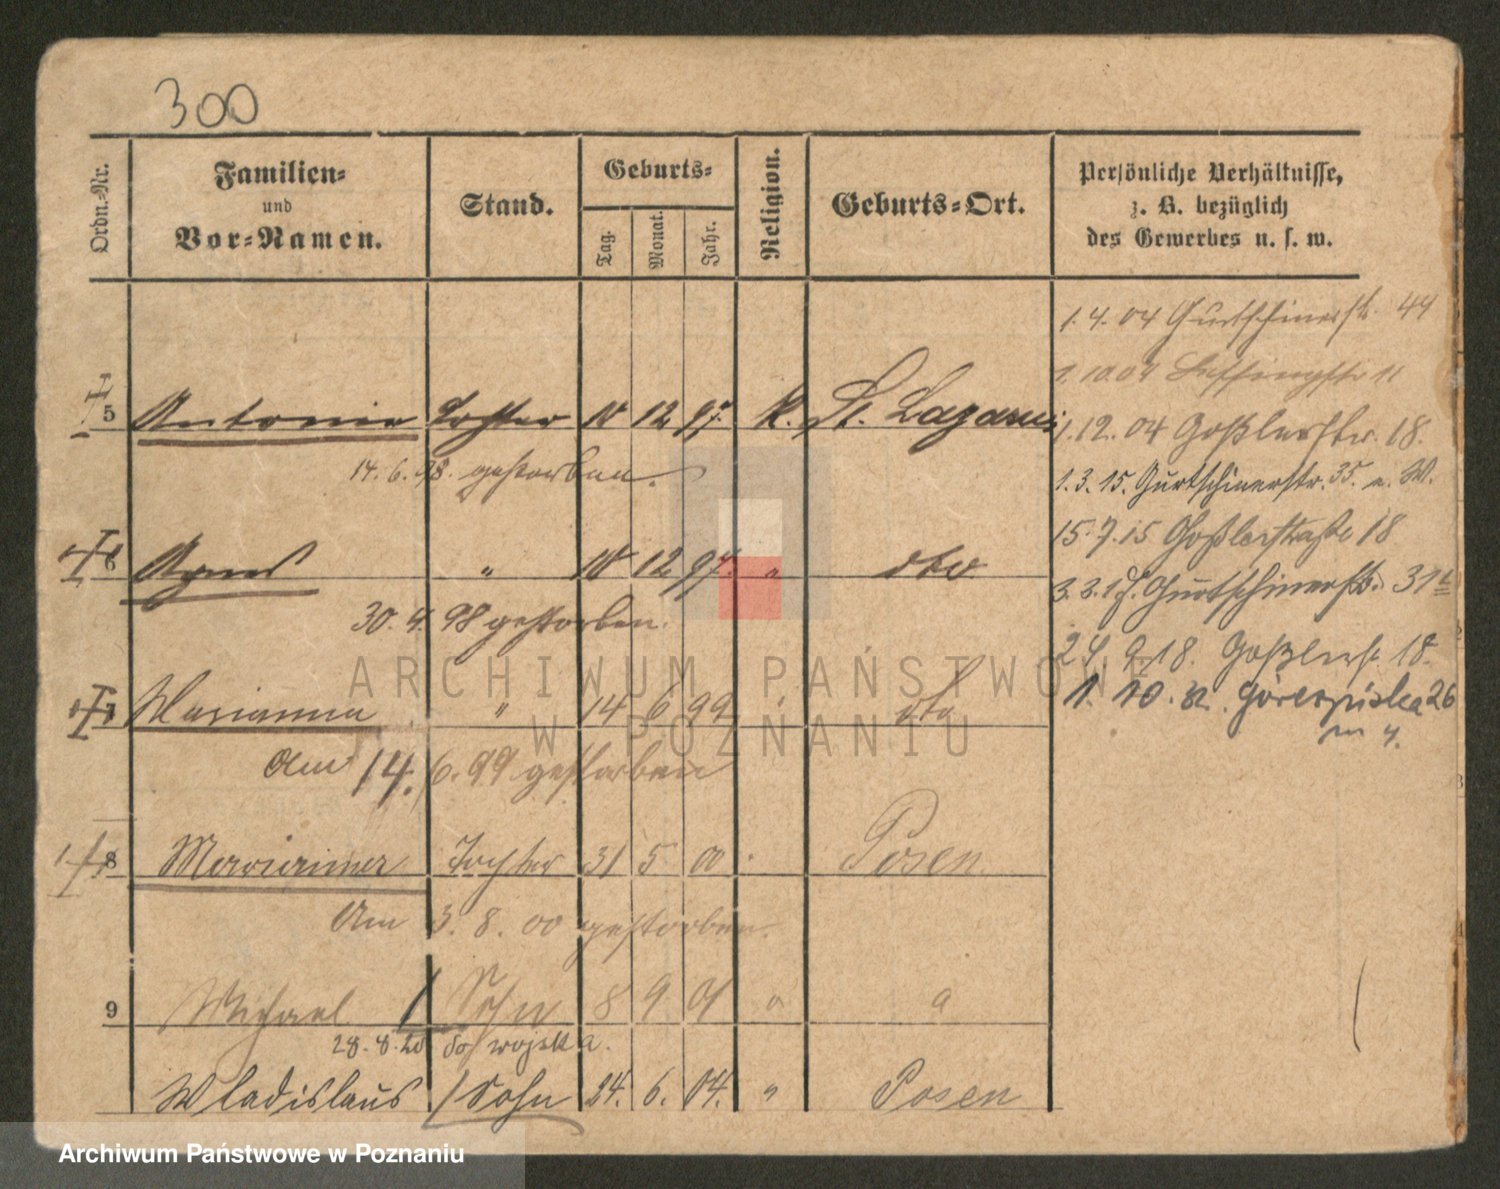 300
Ordn.-Nr.
Familien-
und
Vor-Namen.
Stand.
Geburts-
Tag.
Monat.
Jahr.
Religion.
Geburts-Ort.
Persönliche Verhältnisse,
z. B. bezüglich
des Gewerbes u. s. w.
1.4.04 Gurtschinerstr. 44
1.10.04 Lessingstr 11
5 Antonie Tochter 10 12 97. k. St. Lazarus
1.12.04 Goßlerstr. 18.
14.6.98. gestorben.
1.3.15. Gurtschinerstr. 35. n. W.
15.7.15 Goßlerstraße 18
6 Agnes " 10 12 97. " dto
3.3.17. Gurtschinerstr. 31
30.4.98 gestorben.
24.9.18. Goßlerstr. 18.
7 Marianna " 14 6 99 " dto
1.10. Góreczyńska 26
m 4.
Am 14. 6.99 gestorben
8 Marianna Tochter 31 5 00 Posen
Am 3.8.00 gestorben.
9 Michael Sohn 8 9 01 " "
28.8.20 do wojska.
Wladislaus Sohn 24. 6. 04. " Posen
ARCHIWUM PAŃSTWOWE
W POZNANIU
Archiwum Państwowe w Poznaniu